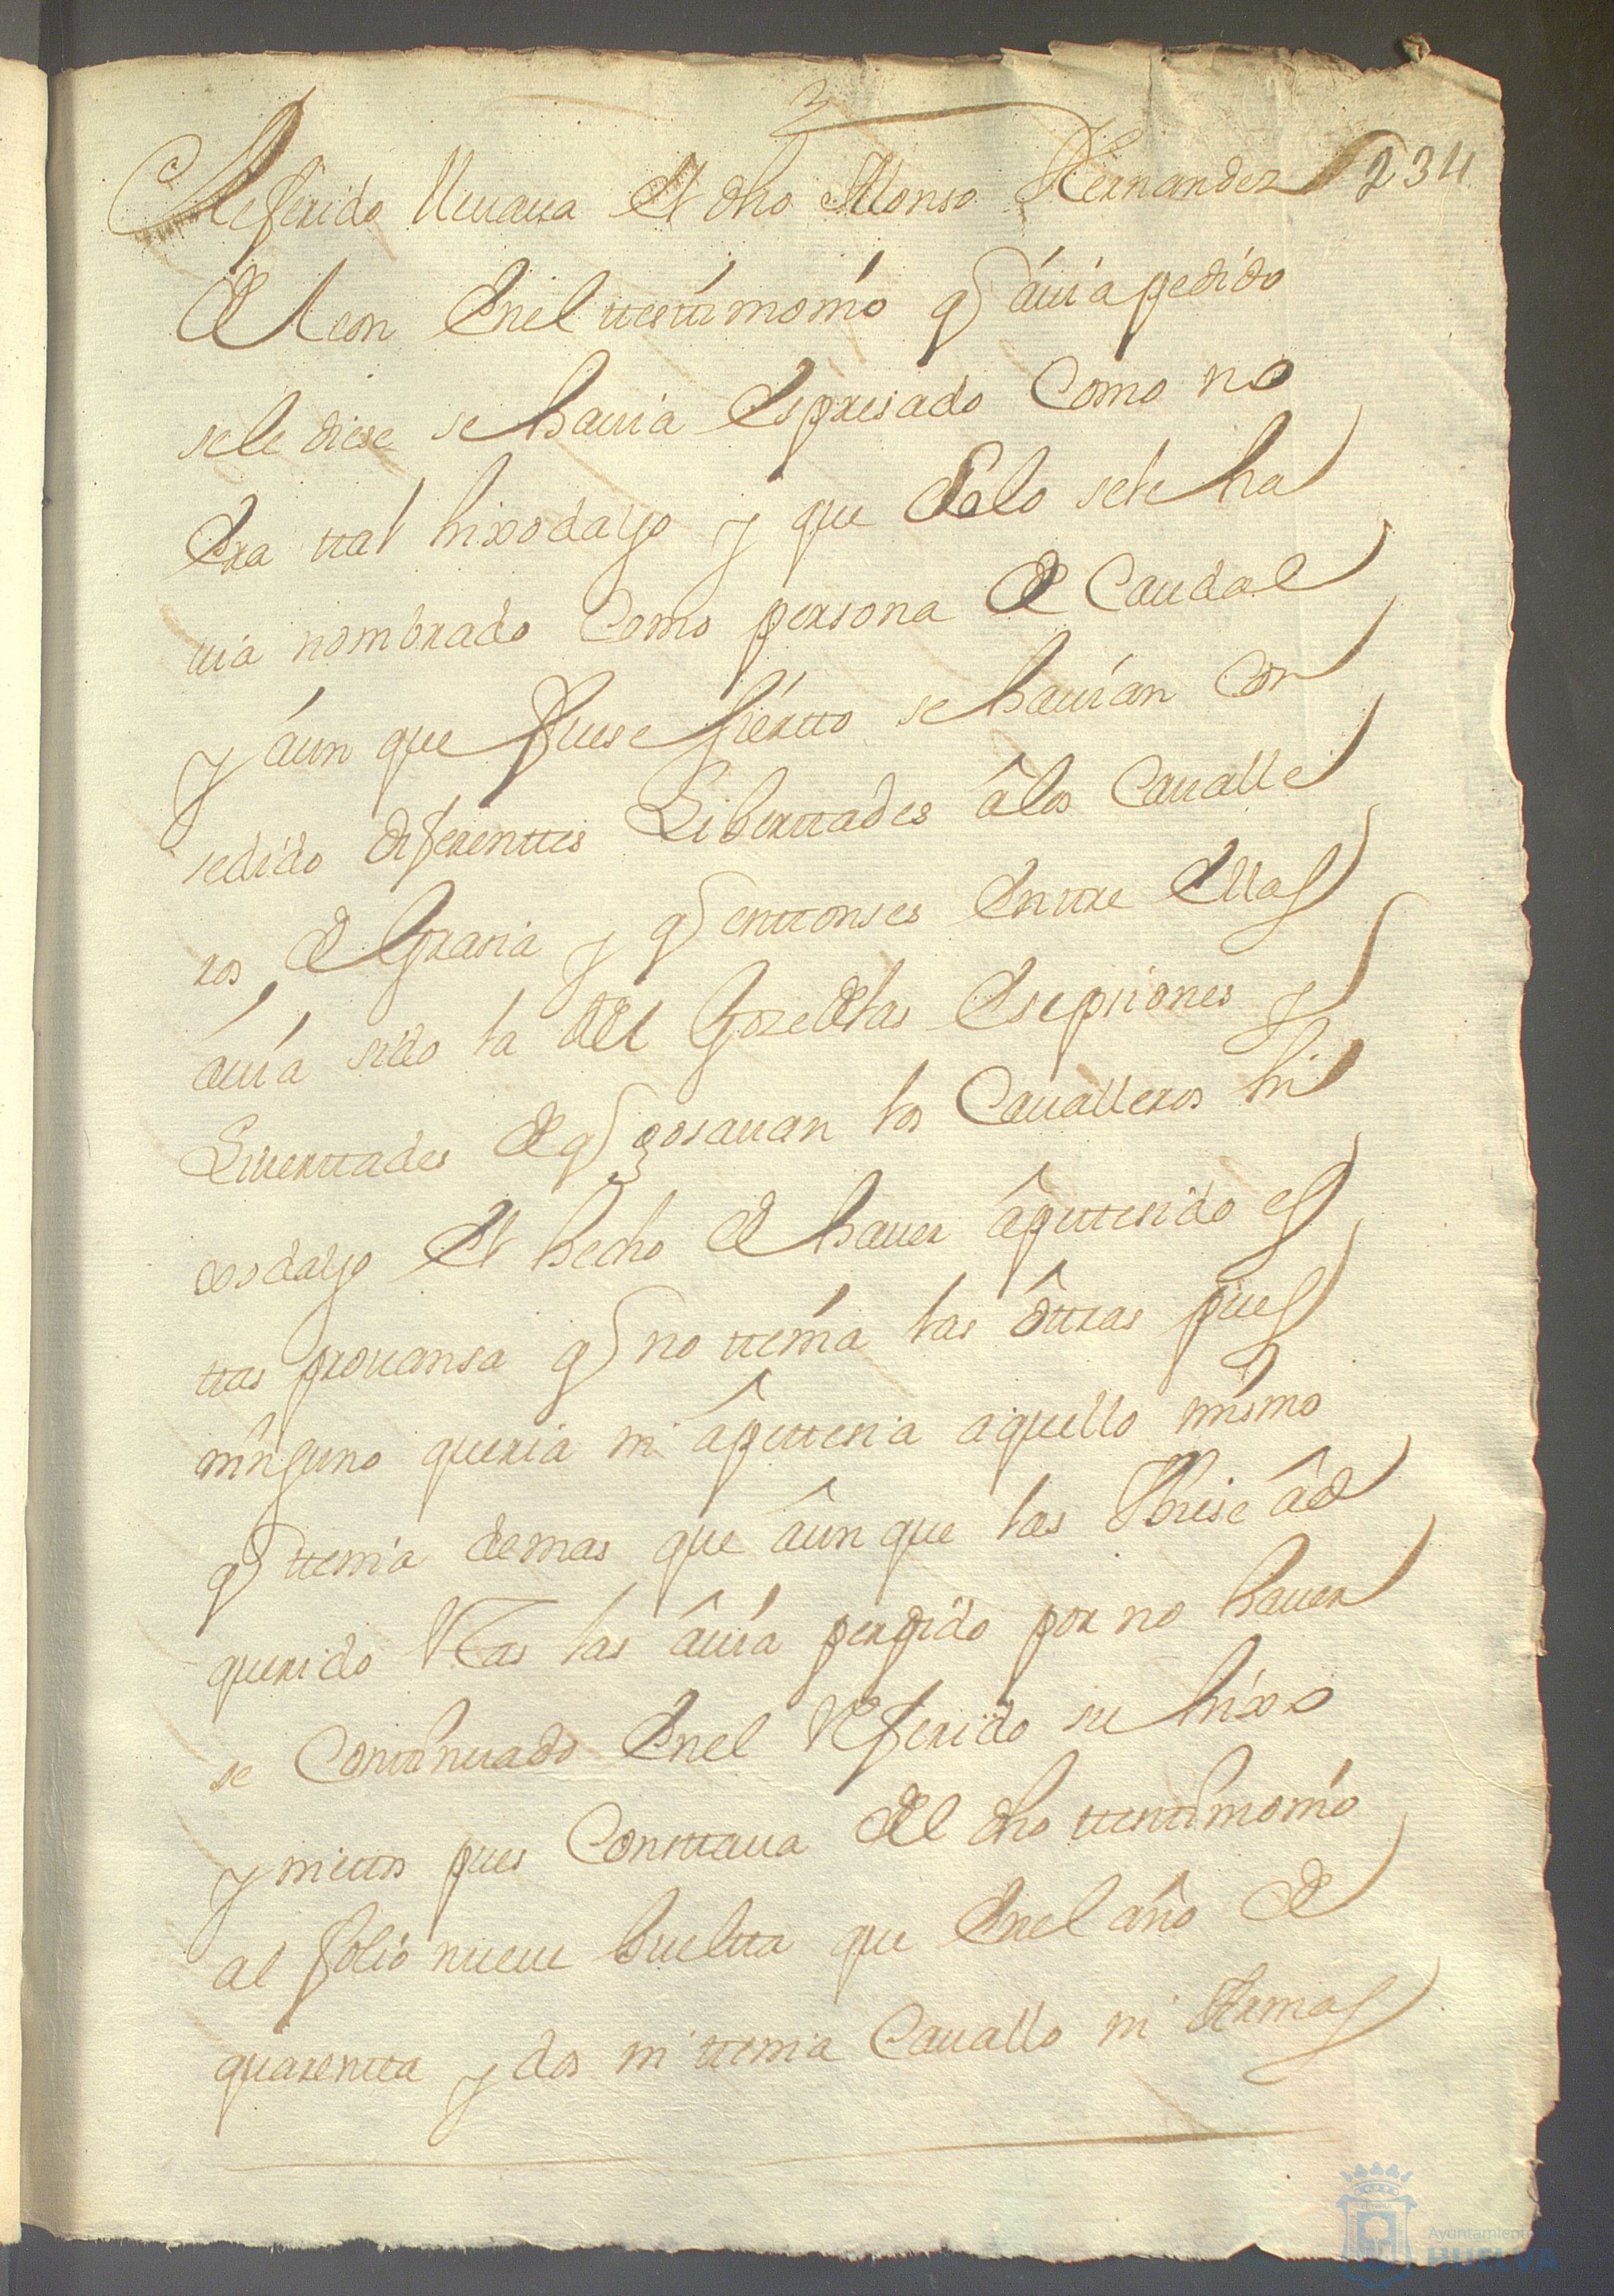 3
Referido lleuaua el dho Alonso Fernandez 234
de Leon en el testtimonio q auia pedido
se le diese se hauia espresado como no
era tal hixodalgo y que solo se le ha
uia nombrado como persona de Caudal
y áun que fuese sierto se hauian con
sedido diferenttes Liberttades â los Caualle
ros de Grasia y q enttonses enttre ellas
áuía sido la del Goze de las esepsiones y
Liuerttades de q gosauan los Caualleros hi
xosdalgo el hecho de hauer âpettesido es
ttas prouansa q no ttenía las ôttras pues
ninguno queria ni âpettesia aquello mismo
q ttenia demas que âun que las huise âd
querido Reas las âuía perdido por no hauer
se Conttinuado en el Referido su hixo
y niettos pues Consttaua del dho ttesttimonio
al folio nueue buelta que en el año de
quarentta y dos ni ttenia Cauallo ni Armas
Ayuntamiento de
HUELVA